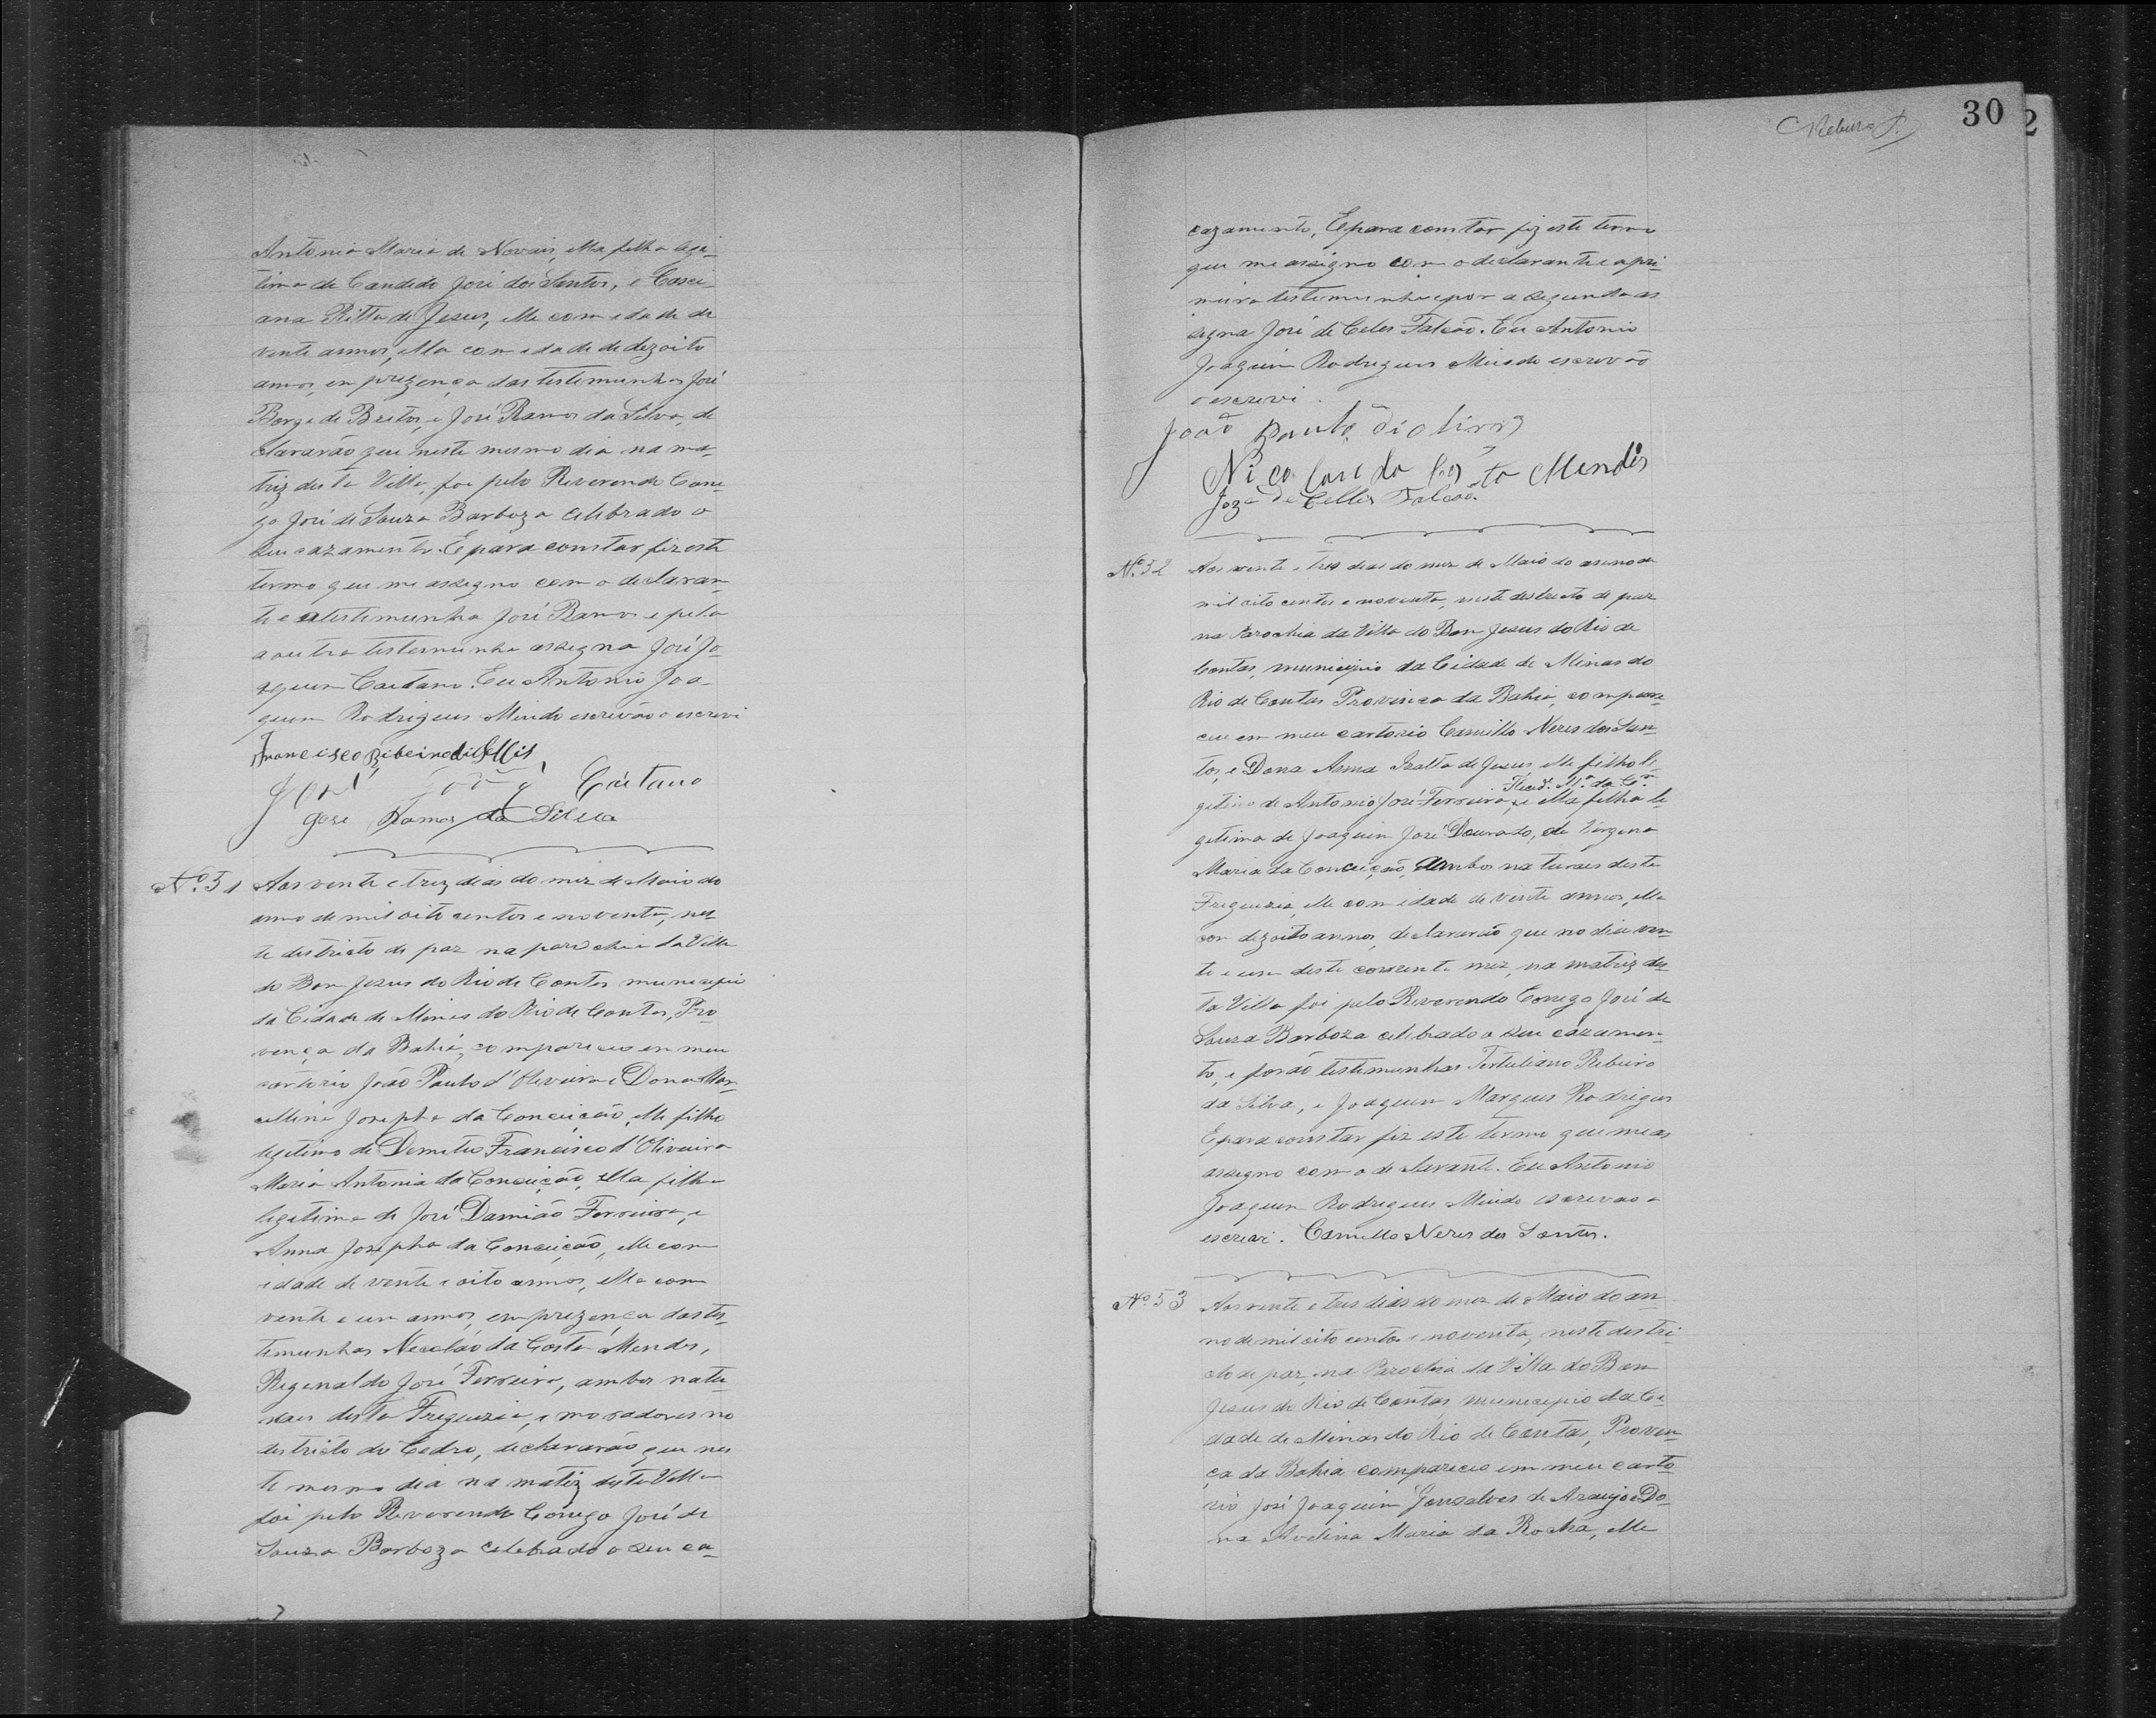 Antonia Maria de Novais, ella filha legi-
tima de Candido José dos Santos, e Cassi-
ana Ritta de Jesus, elle com edade de
vente annos, ella com edade de dezoito
annos, em prezença das testemunhas José
Borge de Britos, e José Ramos da Silva, de
clararão que neste mesmo dia na ma-
triz desta Villa, foi pelo Reverendo Cone-
go José de Souza Barboza celebrado o
seu cazamento. E para constar fiz este
termo que me assegno com o declaran-
te e a testemunha José Ramos e pela
a outra testemunha assegna José Jo-
aquim Caetano. Eu Antonio Joa-
quim Rodrigues Miudo escrivão o escrevi
Francisco Ribeiro
José Caitano
Jose Ramos da Silva
Nº. 51 Aos vente e trez dias do mez de Maio do
anno de mil oito centos e noventa, nes-
te districto de paz na parochia da Villa
do Bom Jesus do Rio de Contas municipio
da Cidade de Minas do Rio de Contas, Pro-
vença da Bahia, compareceo em meu
cartorio João Paulo d'Oliveira e Dona Mar-
cellina Josepha da Conceição, elle filho
legitimo de Demetio Francisco d'Oliveira
Maria Antonia da Conceição, ella filha
legitima de José Damião Ferreira, e
Anna Josepha da Conceição, elle com
edade de vente e oito annos, ella com
vente e um annos, em prezença das tes-
temunhas Necolao da Costa Mendes,
Regenaldo José Ferreira, ambos natu-
raes desta Freguezia, e moradores no
destricto do Cedro, declararão que nes-
te mesmo dia na matiz desta Villa
foi pelo Reverendo Conego José de
Souza Barboza celebrado o seu ca-
30
cazamento, E para constar fiz este termo
que me assigno com o declarante e a pri-
meira testemunha e por a segunda as
segna José de Celes Falcão. Eu Antonio
Joaquim Rodrigues Miudo escrivão
o escrevi.
João Paulo
Nicolau da Costa Mendes
Joze de Celles Falcão
Nº. 52 Aos vente e tres dias do mez de Maio do anno de
mil oito centos e noventa, neste destricto de paz
na Parochia da Villa do Bom Jesus do Rio de
Contas, municipio da Cidade de Minas do
Rio de Contas Provinca da Bahia, compare-
ceu em meu cartorio Camillo Neres dos San-
tos, e Dona Anna Izalta de Jesus elle filho le-
Mª. da Cª.
getimo de Antonio José Ferreira, e ella filha le-
getima de Joaquim José Dourado, de Virgena
Maria da Conceição, ambos naturaes desta
Freguezia, elle com idade de vinte annos, ella
com dezoito annos, declararão que no dia ven-
te e um deste corrente mez, na matriz des-
ta Villa foi pelo Reverendo Conego José de
Souza Barboza celebrado o seu cazamen-
to, e forão testemunhas Tertuliano Ribeiro
da Silva, e Joaquim Marques Rodrigues
E para constar fiz este termo que me as
assegno com o declarante. Eu Antonio
Joaquim Rodrigues Miudo escrevao o
escrevi. Camillo Neres dos Santos.
Nº. 53 Aos vente e tres dias do mez de Maio do an-
no de mil oito centos e noventa, neste destri-
cto de paz, na Parochia da Villa do Bom
Jesus do Rio de Contas municipio da Ci-
dade de Minas do Rio de Contas, Proven-
ça da Bahia compareceo em meu carto-
rio José Joaquim Gonsalves de Araujo e Do-
na Avelina Maria da Rocha, elle